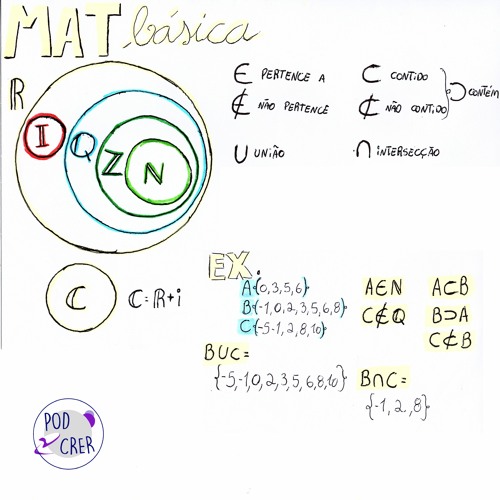 MAT básica
R
I Q Z N
∈ PERTENCE A
∉ NÃO PERTENCE
∪ UNIÃO
⊂ CONTIDO
⊄ NÃO CONTIDO
⊃ CONTÉM
∩ INTERSECÇÃO
C C=R+i
EX.
A{0,3,5,6}
B{-1,0,2,3,5,6,8}
C{-5-1,2,8,10}
A∈N
C∉Q
A⊂B
B⊃A
C⊄B
B∪C=
{-5,-1,0,2,3,5,6,8,10}
B∩C=
{-1,2.,8}
POD
CRER